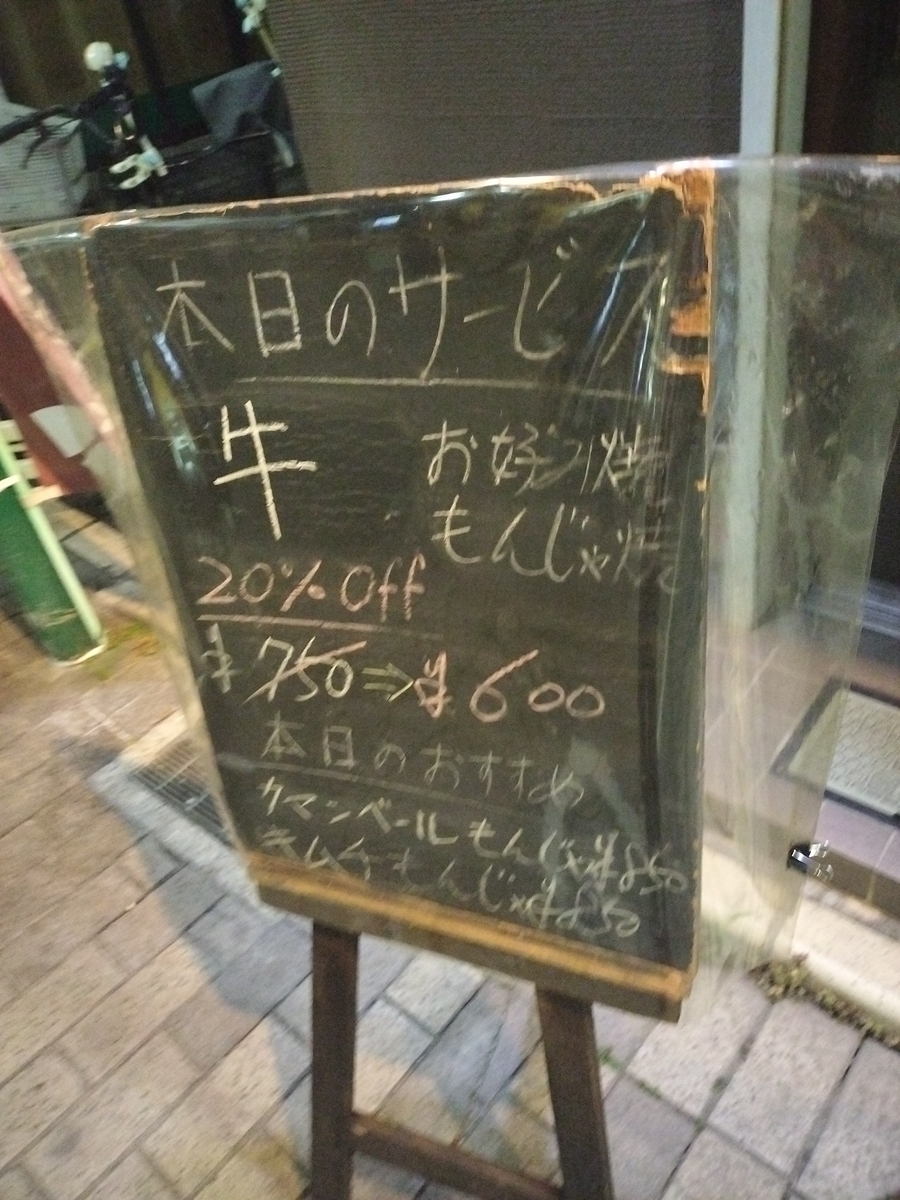 本日のサービス
牛
お好み焼
もんじゃ焼
20% Off
¥750⇒¥600
本日のおすすめ
カマンベールもんじゃ¥850
キムチもんじゃ¥850